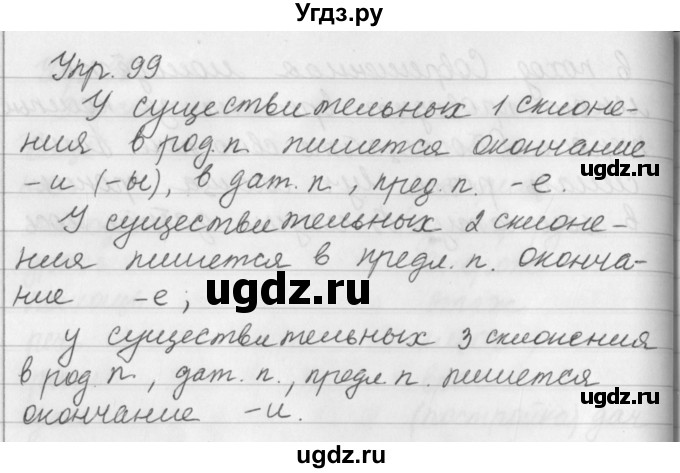 Угдз.ру
Упр. 99
У существительных 1 склоне-
ния в род. п. пишется окончание
-и (-ы), в дат. п., пред. п. -е.
У существительных 2 склоне-
ния пишется в предл. п. оконча-
ние -е;
ugdz.ru
У существительных 3 склонения
в род. п., дат. п., предл. п. пишется
окончание -и.
ugdz.ru
ugdz.ru
ugdz.ru